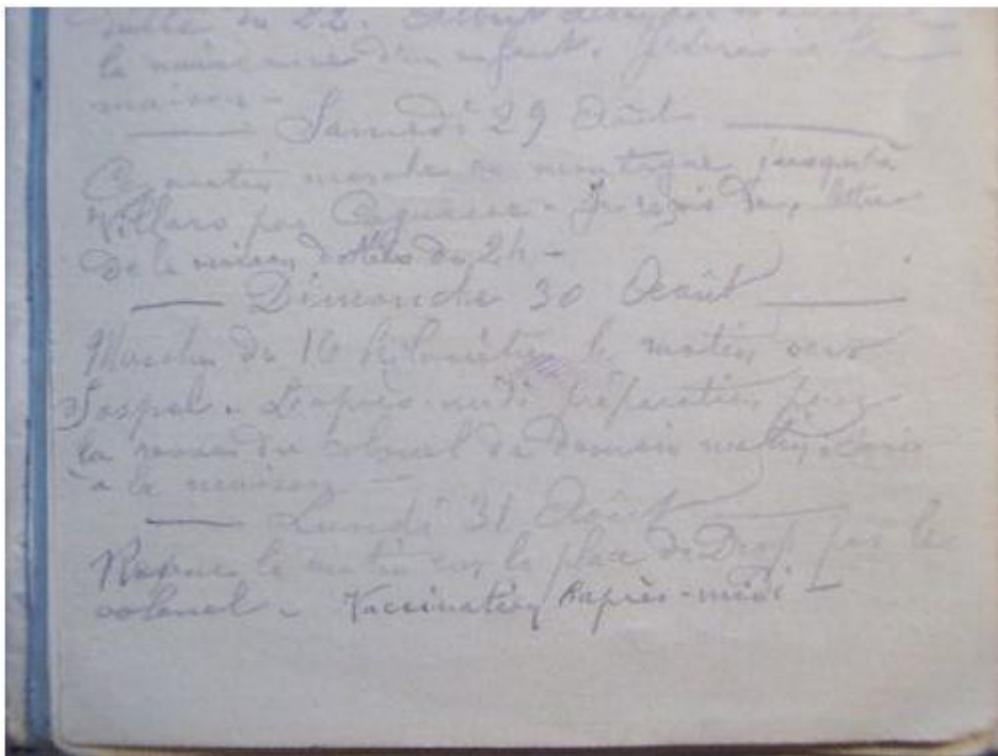 du 22. Albert
la naissance d'un enfant. Je écris à la
maison -
Samedi 29 Août
Ce matin marche en montagne jusqu'à
Villars par . Je reçois deux lettres
de la maison datées du 24 -
Dimanche 30 Août
Marche de 16 kilomètres le matin vers
Sospel. L'après-midi préparation pour
la revue du colonel de demain matin. écris
à la maison -
Lundi 31 Août
Revue le matin sur la place de Drap par le
colonel - Vaccination l'après-midi -